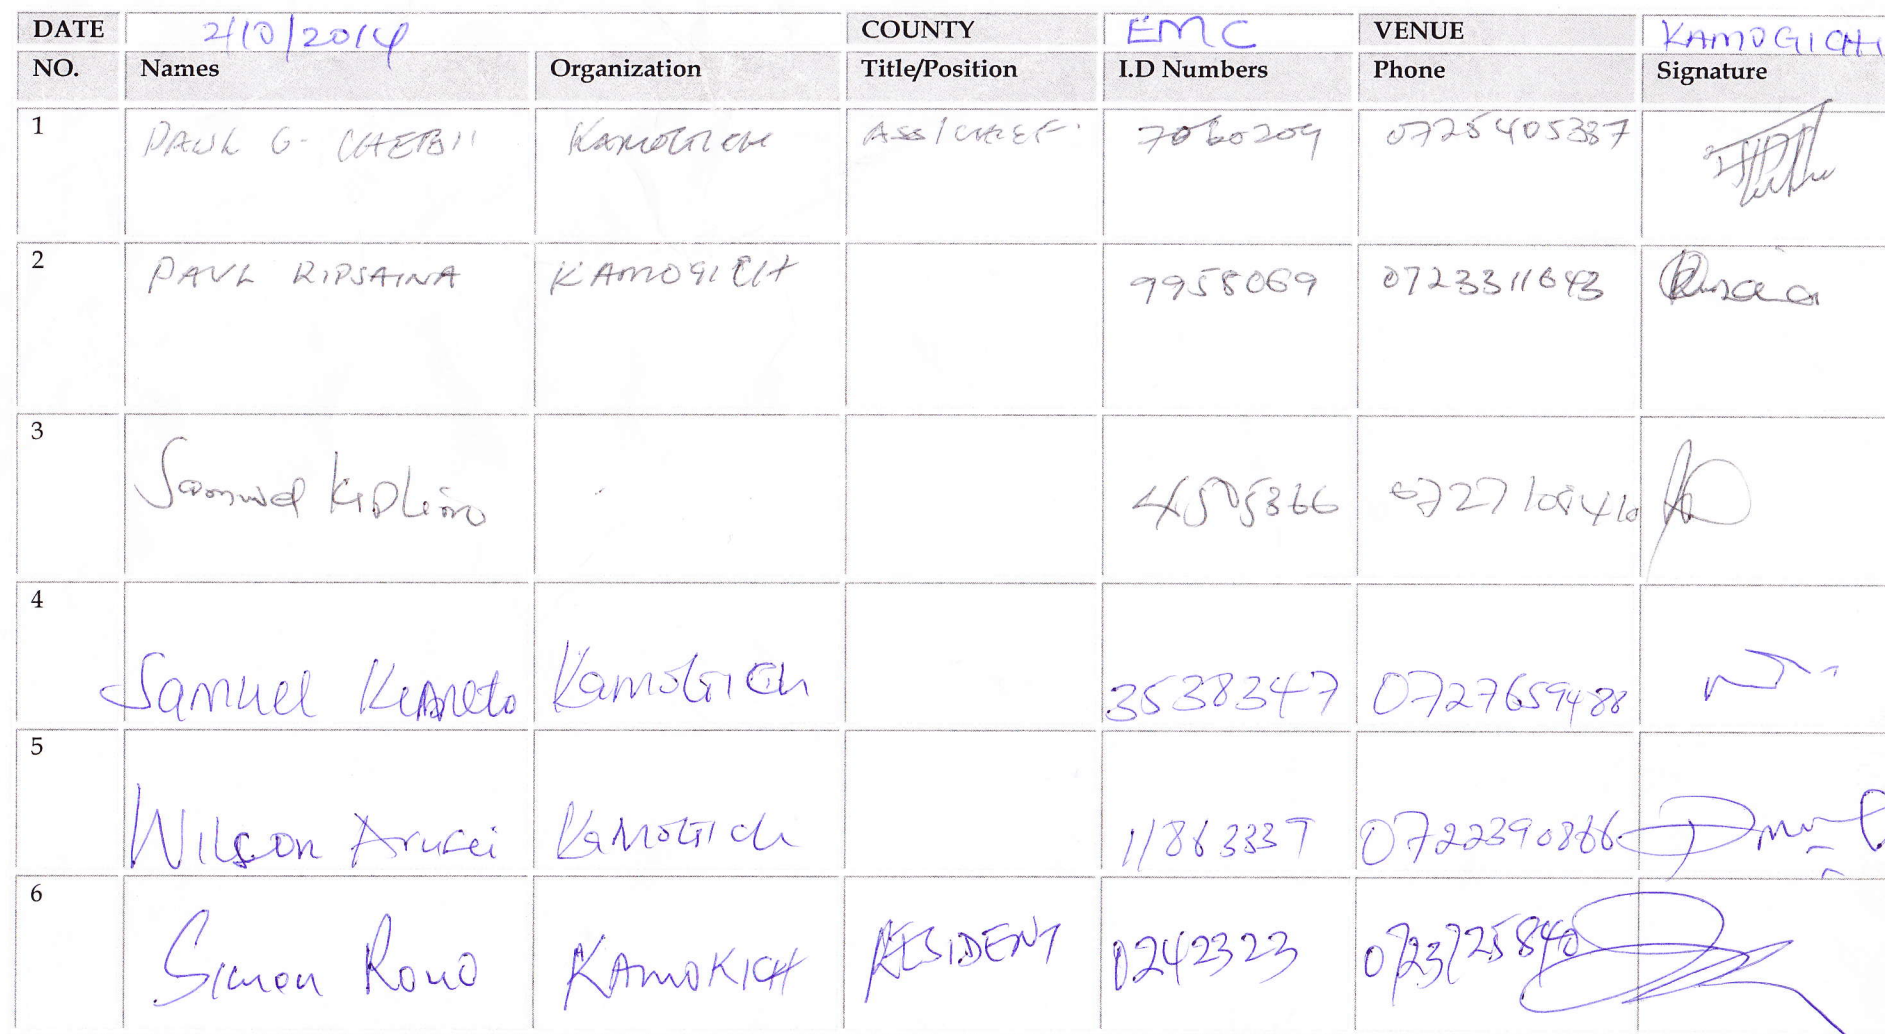 DATE 2/10/2014 COUNTY EMC VENUE KAMOGICH
NO. Names Organization Title/Position I.D Numbers Phone Signature
1 PAUL G. CHEBII KAMOGICH ASS/CHIEF. 7060209 0725405387
2 PAUL KIPSAINA KAMOGICH 9958069 0723311643
3 Samuel Kiplimo 4505366
4 Samuel Kamogich 3538347 0727659488
5 Wilson Arusei Kamogich 11863339 0722390866
6 Simon Rono KAMOKICH RESIDENT 0242323 0723725840